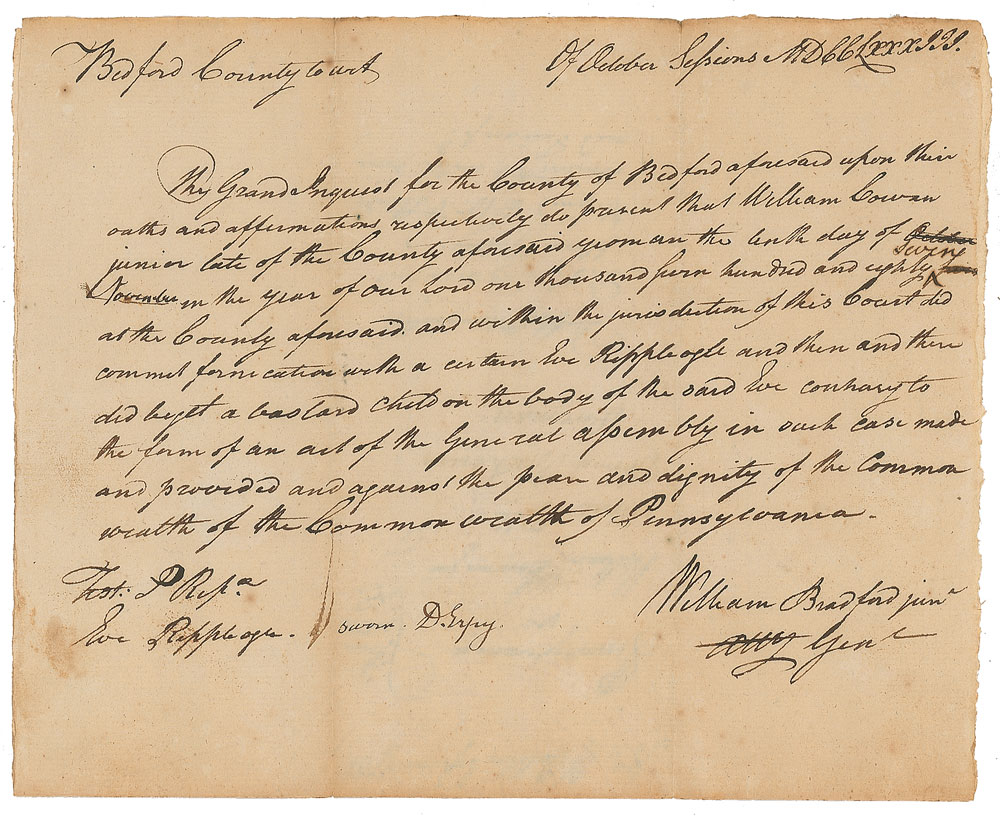 Bedford County Court
Of October Sessions MDCCLXXXIII.
The Grand Inquest for the County of Bedford aforesaid upon their
oaths and affirmations respectively do present that William Cowan
junior late of the County aforesaid yeoman the tenth day of October
November in the year of our Lord one thousand seven hundred and eighty
at the County aforesaid. and within the jurisdiction of this Court did
commit fornication with a certain Eve Rippleogle and then and there
did beget a bastard child on the body of the said Eve contrary to
the form of an act of the General assembly in such case made
and provided and against the peace and dignity of the Common
wealth of the Common wealth of Pennsylvania.
Eve Rippleogle. sworn. D. Espy.
William Bradford junr
Atty Genl